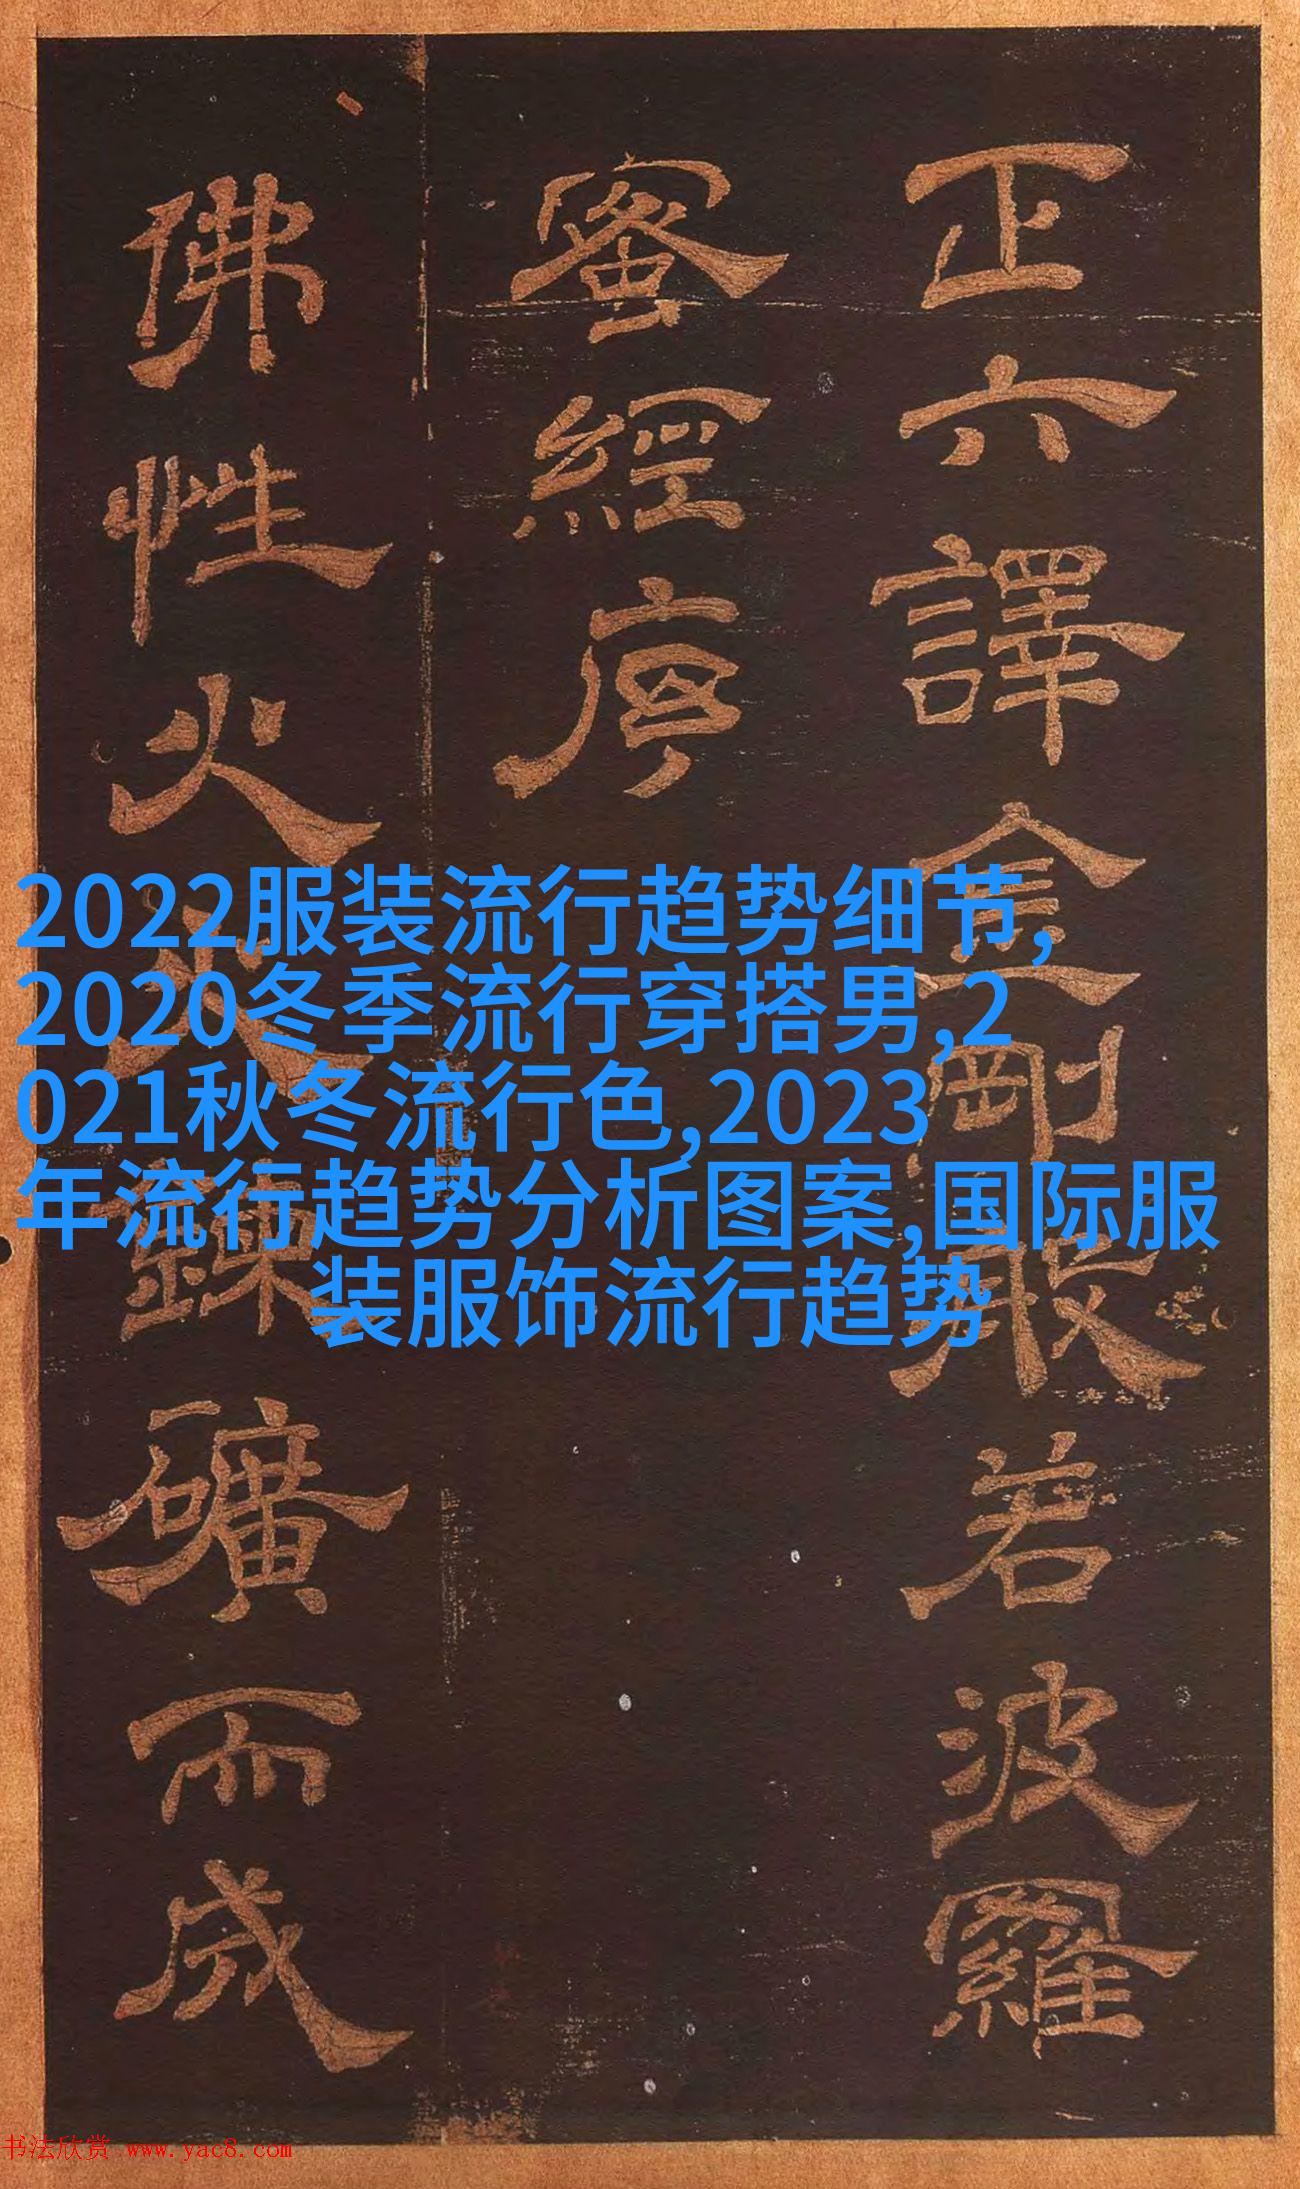 正六譯金剛般若波羅
蜜經序
佛性火火鍊礦而成
2022服装流行趋势细节,
2020冬季流行穿搭男,2
021秋冬流行色,2023
年流行趋势分析图案,国际服
装服饰流行趋势
书法欣赏 www.yac8.com